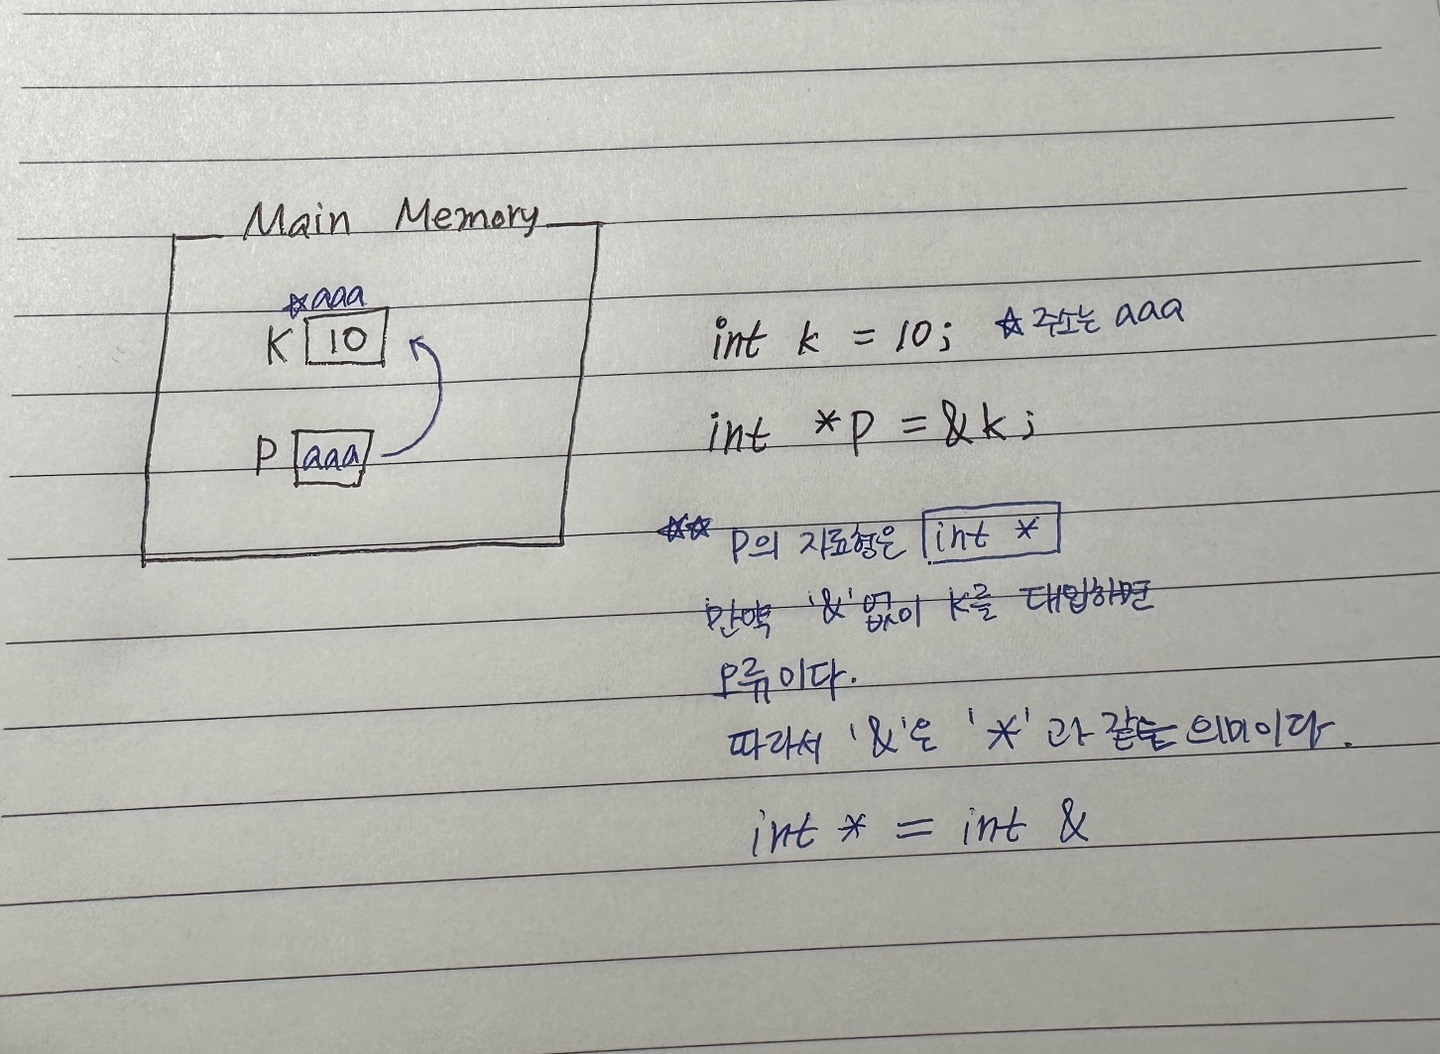 Main Memory
☆aaa
K 10
P aaa
int k = 10; ☆ 주소는 aaa
int *p = &k;
☆☆ P의 자료형은 int *
만약 '&'없이 K를 대입하면
오류이다.
따라서 '&'은 '*'과 같은 의미이다.
int * = int &